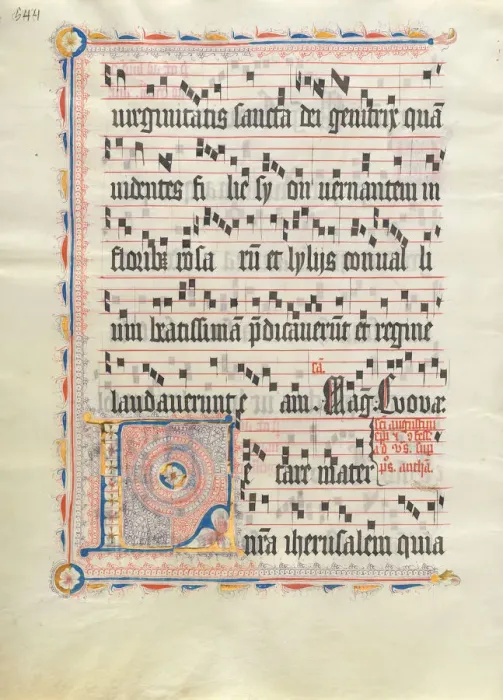 544
uirginitatis sancta dei genitrix quā
uidentes fi lie sy on uernantem in
floribꝫ rosa rū et lylijs conual li
um beatissimā p̄dicauerūt et regine
laudauerunt e am. Maḡ. Euouae
cā.
sci augustini
ad vs. sup
ps. anthā.
e tare mater
nr̄a iherusalem quia